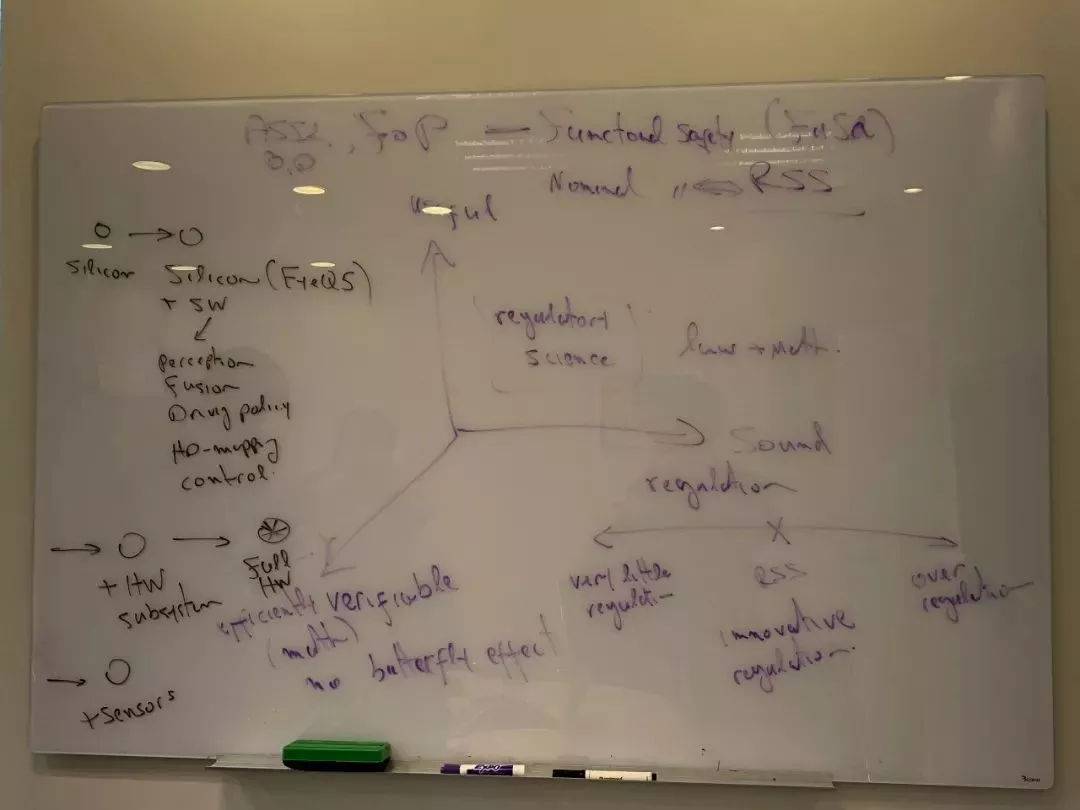 ASIL, FoP — Functional Safety (FuSa)
B,D
Nominal " ⟺ RSS
Useful
O → O
Silicon Silicon (EyeQ5)
+ SW
perception
Fusion
Driving policy
HD-mapping
control.
regulatory
science
law + math.
Sound
→ O → Full
+ HW HW
subsystem
→ O
+ sensors
efficiently verifiable
(math)
no butterfly effect
regulation
very little
regulation
X
RSS
innovative
regulation.
over
regulation
EXPO